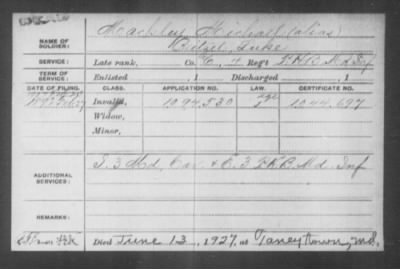 Mackley, Michael (alias)
NAME OF SOLDIER: Luke
SERVICE: Late rank, Co. Reg't P.H.B. Md. Inf
TERM OF SERVICE: Enlisted , 1 Discharged , 1
DATE OF FILING. CLASS. APPLICATION NO. LAW. CERTIFICATE NO.
Invalid, 1094,530 1044,697
Widow,
Minor,
ADDITIONAL SERVICES: Md. Cav. & 3 P.H.B. Md. Inf
REMARKS:
Died June 13, 1927, at Taneytown, Md.